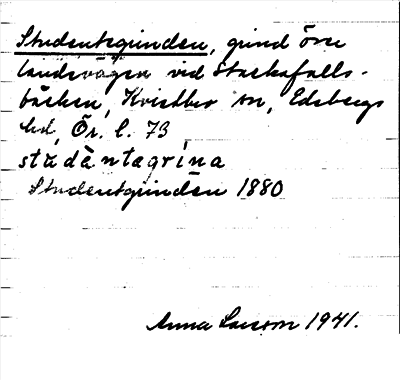 Studentsgrinden, grind över
landsvägen vid Starkafalls-
bäcken, Kvistbro sn, Edsbergs
hd, Ör. l. 73
studàntagrina
Studentsgrinden 1880
Anna Larsson 1941.